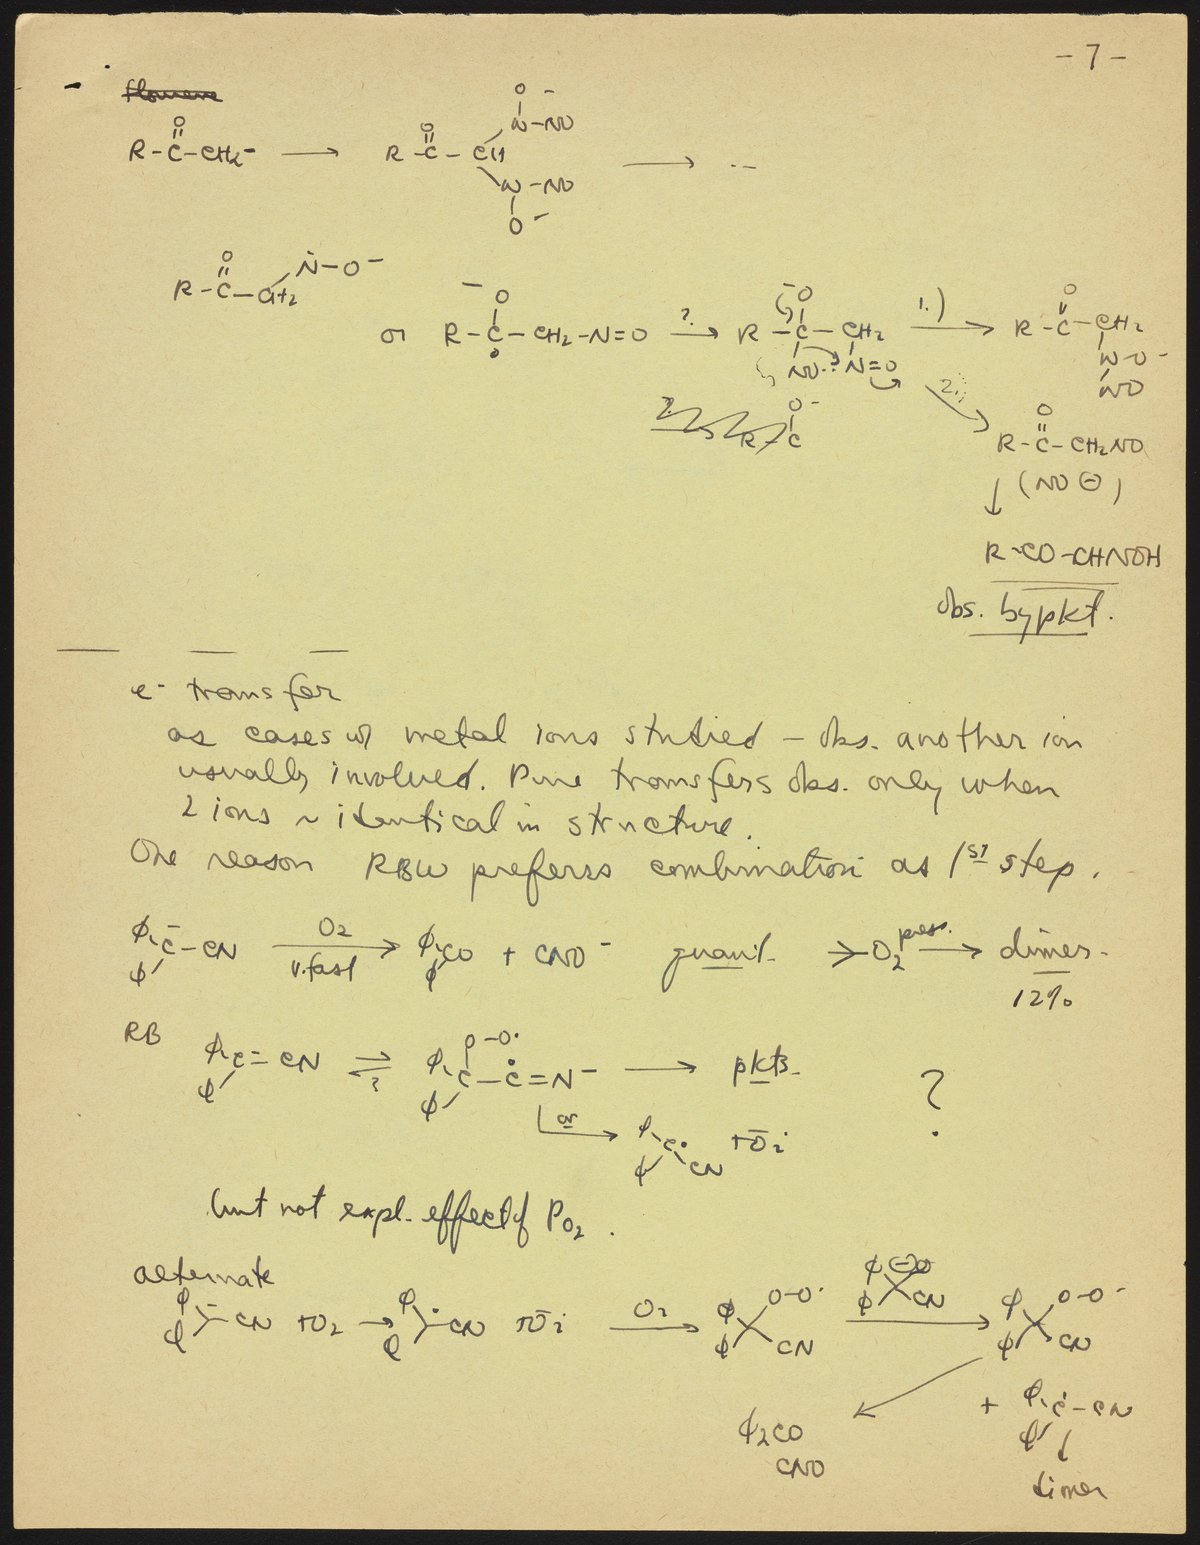 - 7 -
R-C(=O)-CH2⁻ → R-C(=O)-CH(N(O⁻)-NO)(N(O⁻)-NO) → --
R-C(=O)-CH2-N-O⁻
or R-C(O⁻)-CH2-N=O ?→ R-C(O⁻)(NO)-CH2-N=O 1.)→ R-C(=O)-CH2-N(O⁻)-NO
2.)→ R-C(=O)-CH2NO
?→ R-C-O⁻
↓ (NO⊖)
R-CO-CHNOH
obs. bypkt.
e⁻ transfer
as cases w/ metal ions studied – obs. another ion
usually involved. Pure transfers obs. only when
2 ions ~ identical in structure.
One reason RBW preferrs combination as 1st step.
ϕ, ϕ C⁻-CN O2→ v.fast ϕ, ϕ CO + CNO⁻ quant. > O2 press. → dimer.
12%
RB ϕ, ϕ C⁻-CN ⇌ ? ϕ, ϕ C(O-O·)-C=N⁻ → pkts. ?
or→ ϕ, ϕ C·-CN + O2⁻
but not expl. effect of PO2.
alternate
ϕ, ϕ C⁻-CN + O2 → ϕ, ϕ C·-CN + O2⁻ O2→ ϕ, ϕ C(O-O·)CN ϕ, ϕ ⊖ CN→ ϕ, ϕ C(O-O⁻)CN
+ ϕ, ϕ C·-CN
↓
dimer
ϕ2CO
CNO